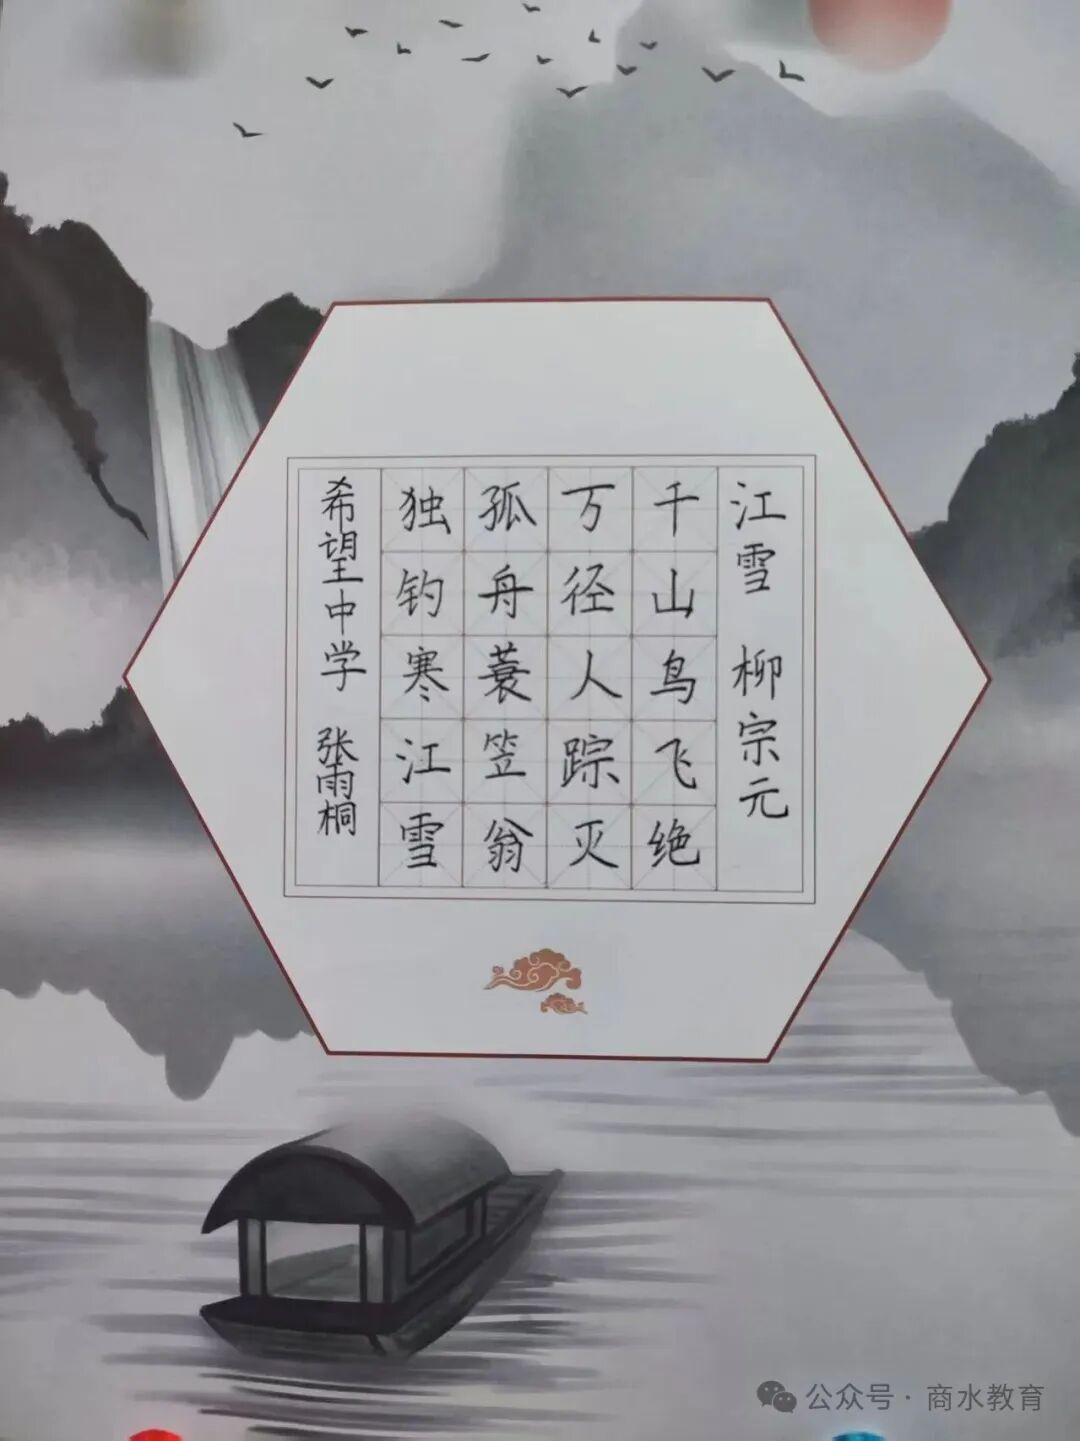 江雪 柳宗元
千山鸟飞绝
万径人踪灭
孤舟蓑笠翁
独钓寒江雪
希望中学 张雨桐
公众号·商水教育